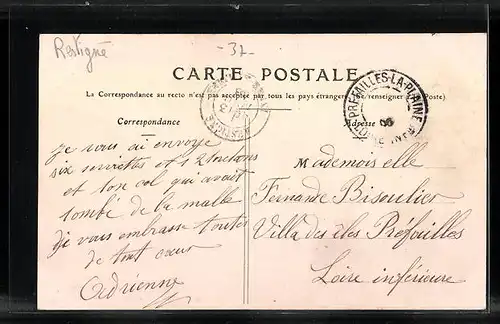 Restigné
- 37 -
CARTE POSTALE
La Correspondance au recto n'est pas acceptée par tous les pays étrangers (Se renseigner à la Poste)
Correspondance
Adresse
RESTIGNÉ
PREFAILLES-LA-PLAINE
LOIRE INFRE
je vous ai envoyé
six serviettes et 12
et ton col qui avait
tombé de la malle
Je vous embrasse toutes
de tout cœur
Adrienne
Mademoiselle
Fernande Bisoulier
Villa des iles Préfailles
Loire inférieure